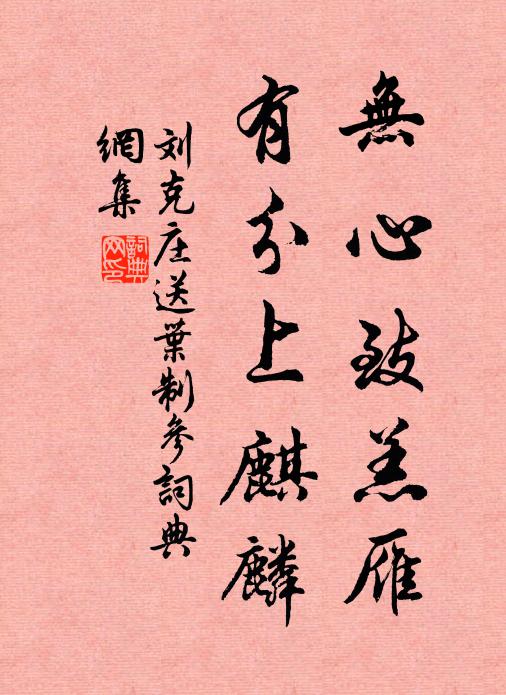 無心致羔雁
有分上麒麟
刘克庄送葉制參詞典
網集
詞典
网印